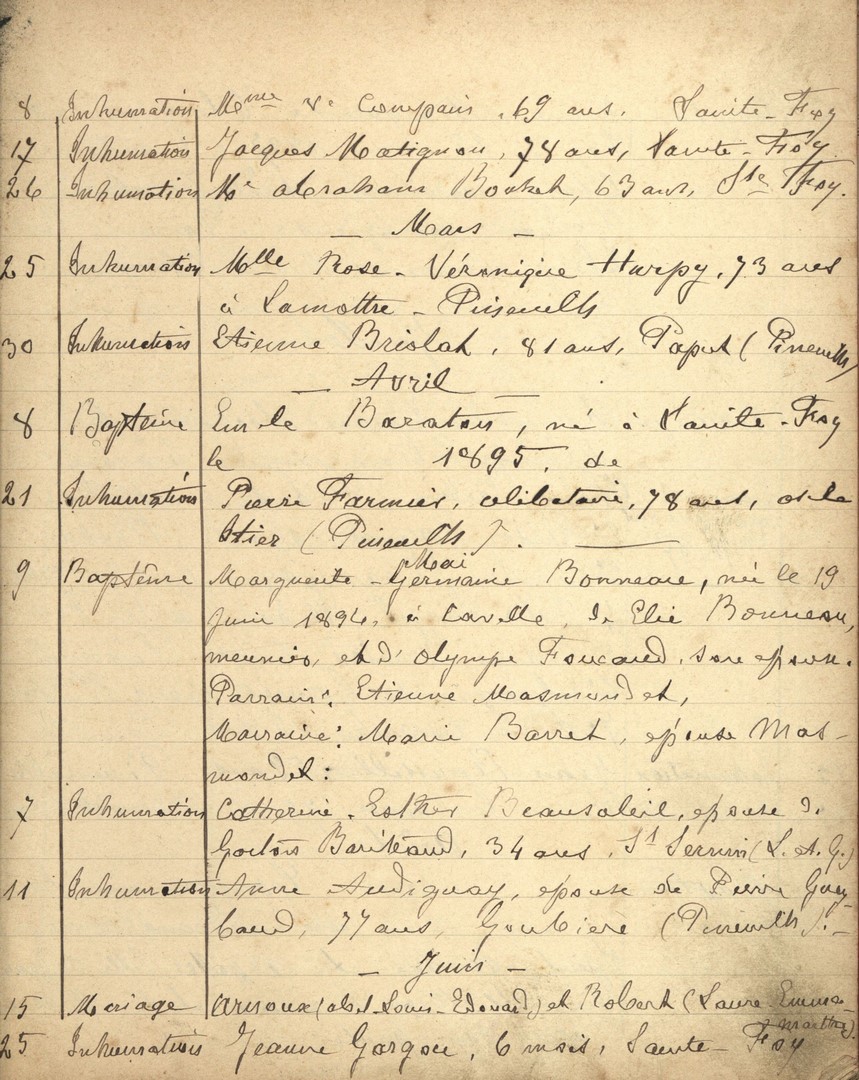 8 Inhumation Mme Ve Compain, 69 ans. Sainte-Foy
17 Inhumation Jacques Matignon, 78 ans, Sainte-Foy.
26 Inhumation Mr Abraham 63 ans, Ste Foy.
— Mars —
25 Inhumation Mlle Rose-Véronique Hurpy, 73 ans
à Lamothe-Pineuilh
30 Inhumation Etienne Briolat, 81 ans, Paput (Pineuilh)
— Avril —
8 Baptême Baraton, né à Sainte-Foy
le 1895, de
21 Inhumation Pierre Farmier, célibataire, 78 ans,
(Pineuilh).
Mai
9 Baptême Marguerite-Germaine Bonneau, née le 19
juin 1894, à Lavelle, de Elie Bonneau,
meunier, et d'Olympe Foucaud, son épouse.
Parrain: Etienne Masmondet,
Marraine: Marie Barret, épouse Mas-
mondet:
7 Inhumation Catherine-Esther Beausoleil, épouse de
Bariteaud, 34 ans, St Sernin (L. et G.)
11 Inhumation Anne Audiguay, épouse de Pierre Guey-
baud, 77 ans, Goubière (Pineuilh).-
— Juin —
15 Mariage Arnoux (Abel-Louis-Edouard) et Robert (Laure-Emma-
Marthe).
25 Inhumation Jeanne Gargou, 6 mois, Sainte-Foy